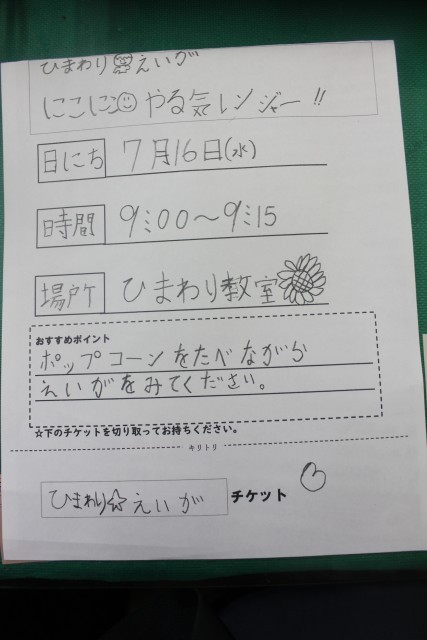 ひまわり えいが
にこにこ やる気レンジャー!!
日にち 7月16日(水)
時間 9:00～9:15
場所 ひまわり教室
おすすめポイント
ポップコーンをたべながら
えいがをみてください。
☆下のチケットを切り取ってお持ちください。
キリトリ
ひまわり☆えいが チケット